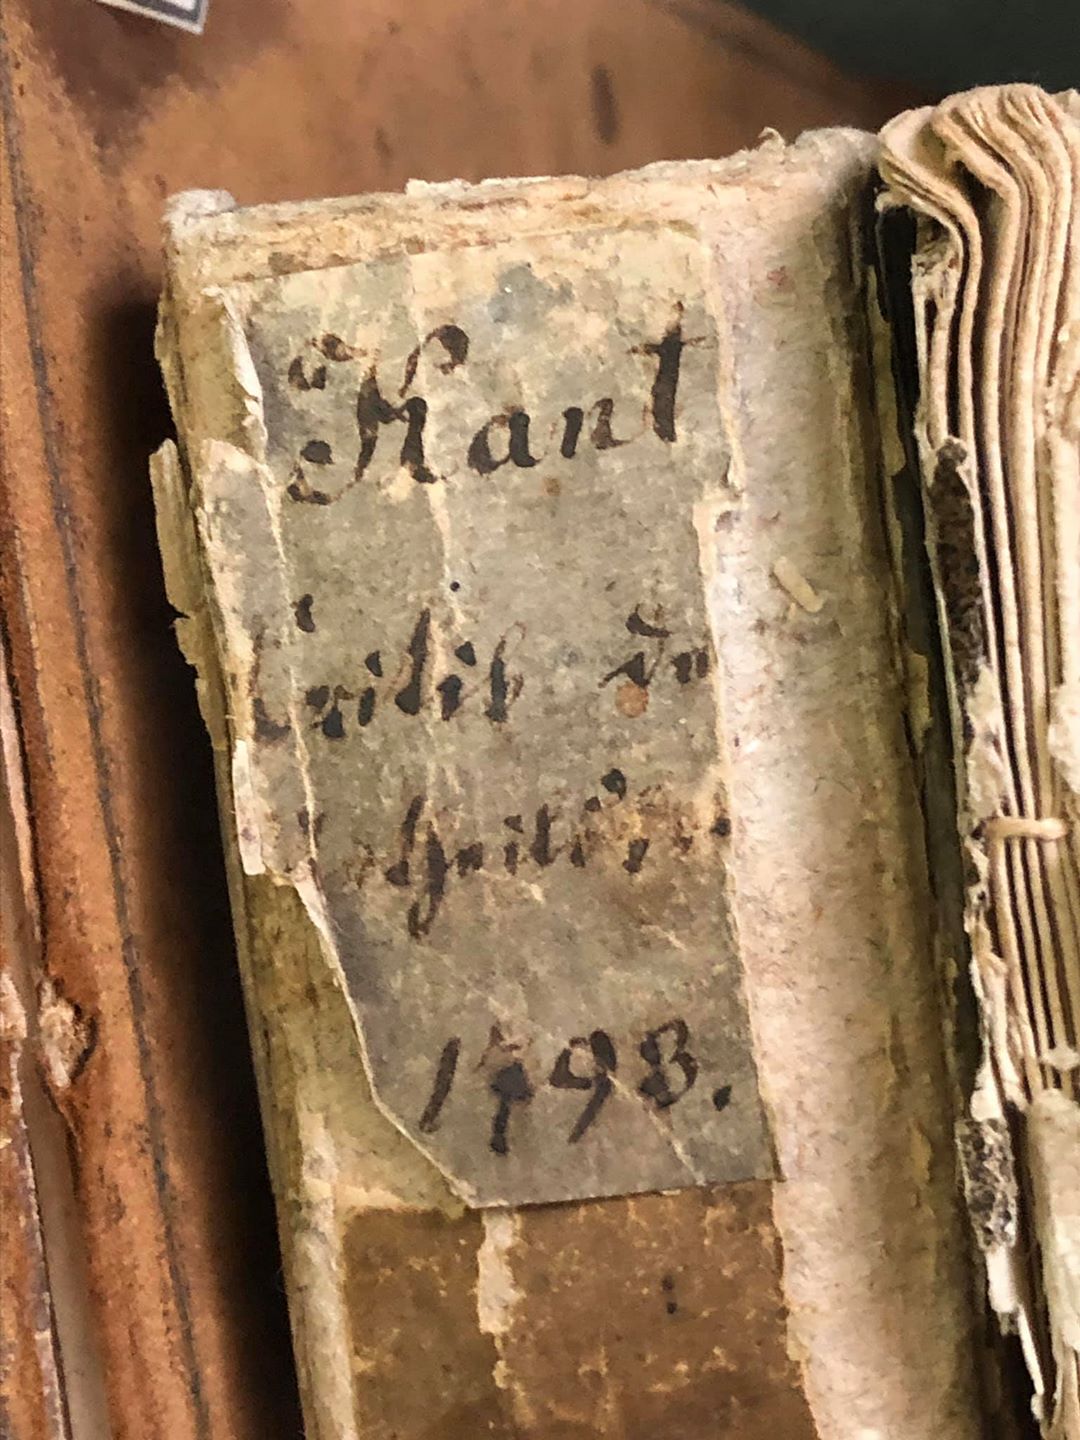 Kant
Critik der
Urtheilskr
1793.